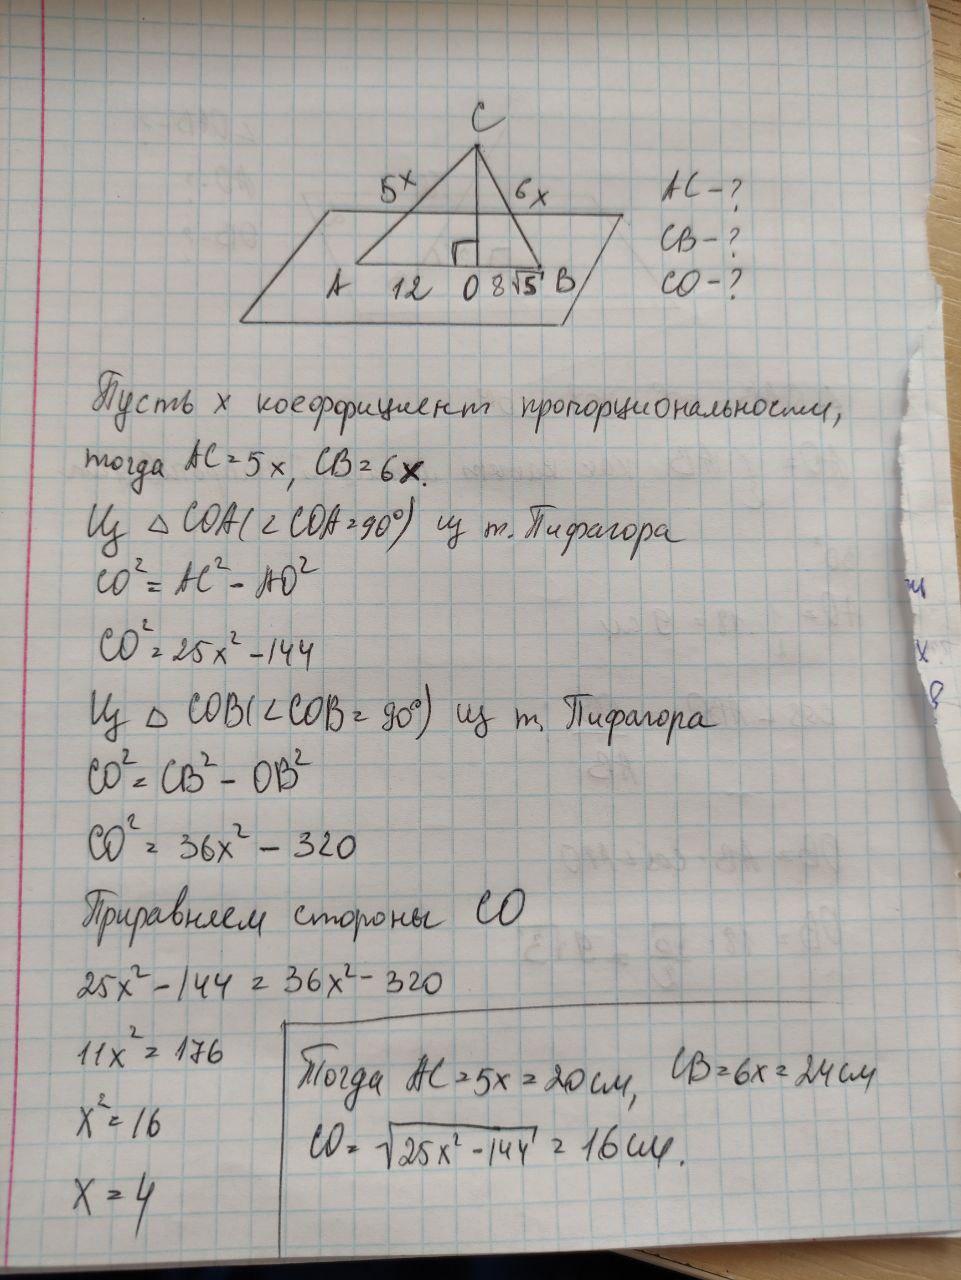 C
5x 6x
A 12 O 8√5 B
AC-?
CB-?
CO-?
Пусть x коеффициент пропорциональности,
тогда AC=5x, CB=6x.
Из △ COA(∠COA=90°) из т. Пифагора
CO²=AC²-AO²
CO²=25x²-144
Из △ COB(∠COB=90°) из т. Пифагора
CO²=CB²-OB²
CO²=36x²-320
Приравняем стороны CO
25x²-144=36x²-320
11x²=176
x²=16
x=4
Тогда AC=5x=20см, CB=6x=24см
CO=√25x²-144=16см.